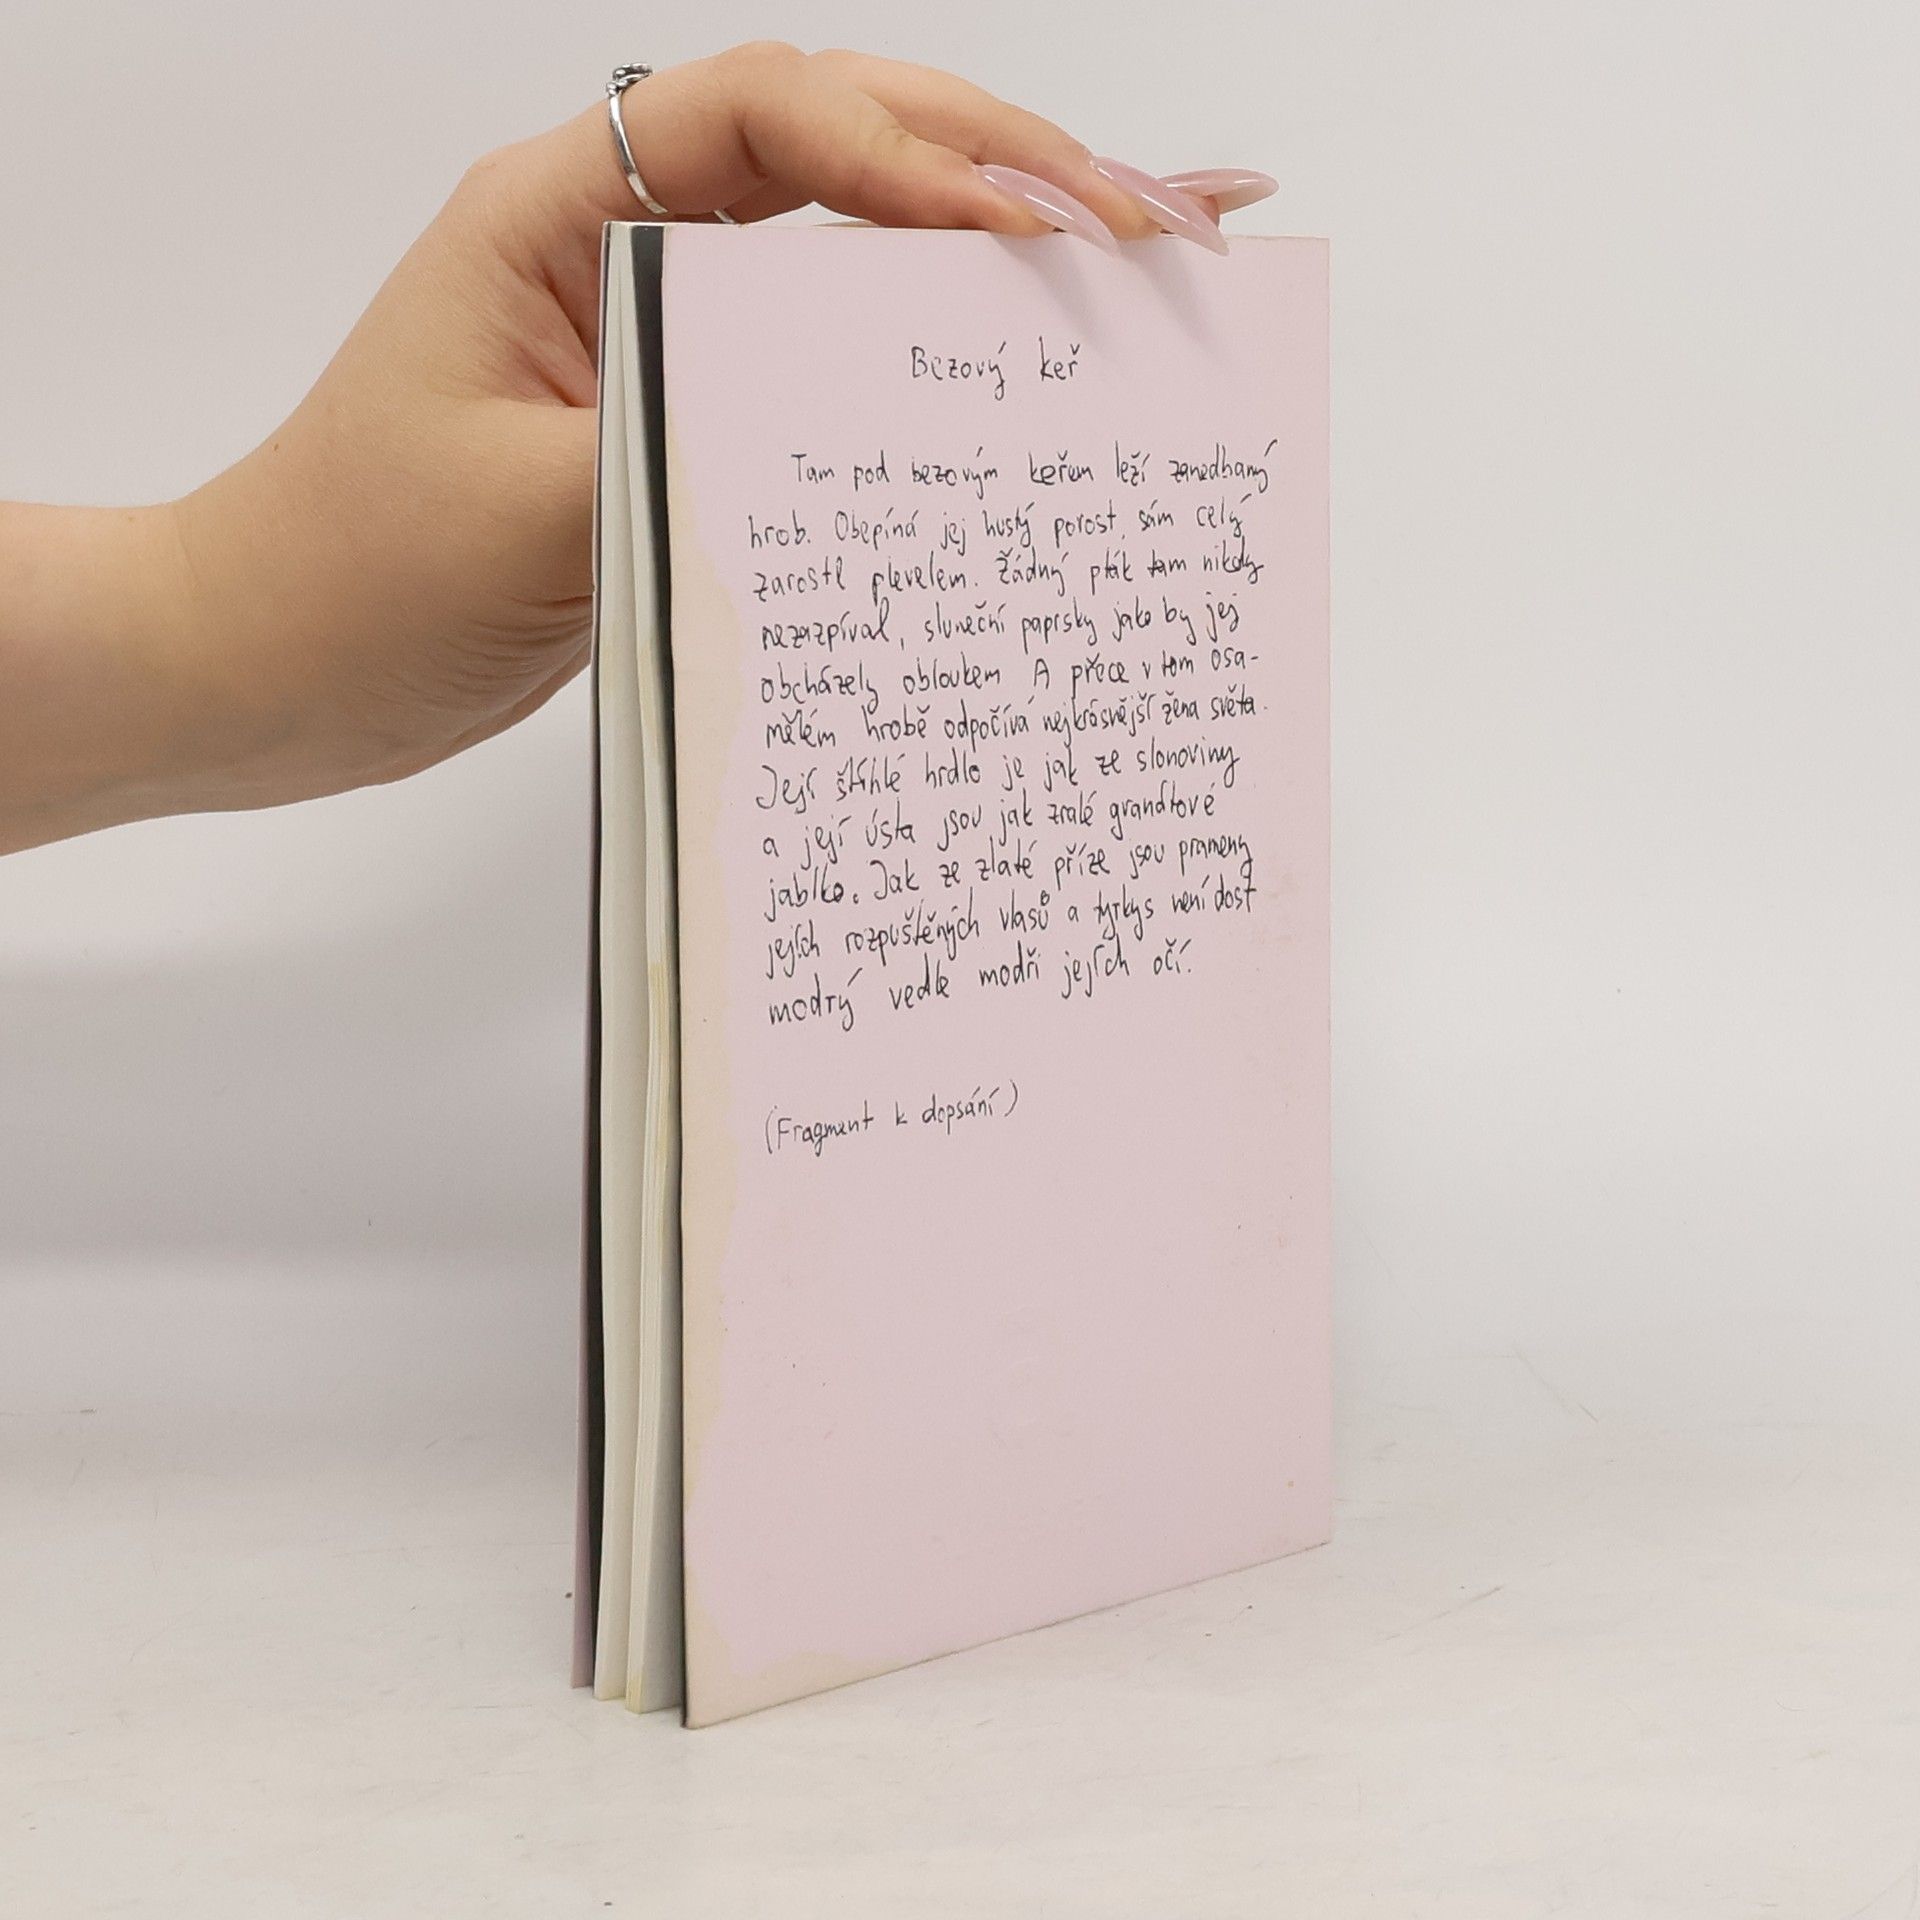 Bezový keř
Tam pod bezovým keřem leží zanedbaný
hrob. Obepíná jej hustý porost, sám celý
zarostl plevelem. Žádný pták tam nikdy
nezazpíval, sluneční paprsky jako by jej
obcházely obloukem A přece v tom osa-
mělém hrobě odpočívá nejkrásnější žena světa.
Její štíhlé hrdlo je jak ze slonoviny
a její ústa jsou jak zralé granátové
jablko. Jak ze zlaté příze jsou prameny
jejích rozpuštěných vlasů a tyrkys není dost
modrý vedle modři jejích očí.
(Fragment k dopsání)